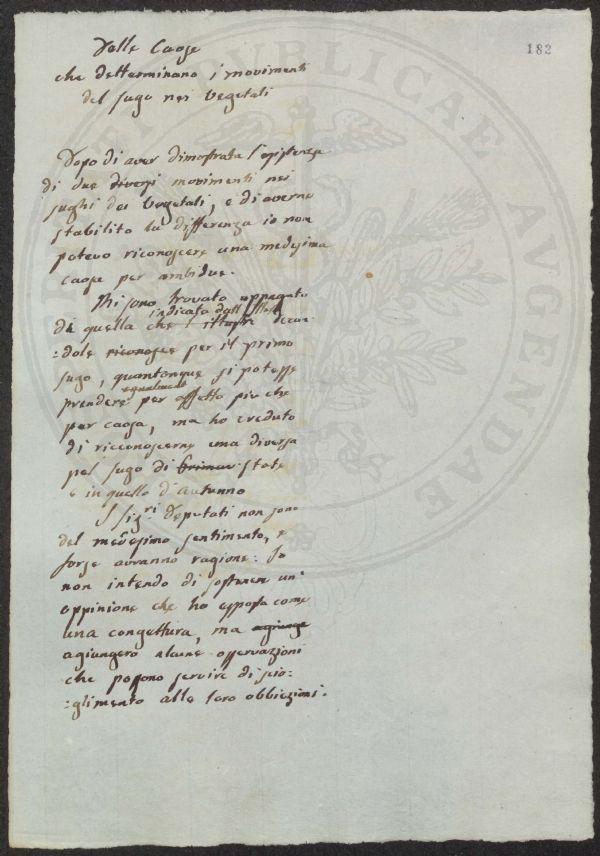 182
Dalle Caose
che detterminano i movimenti
del sugo nei vegetali
Dopo di aver dimostrata l'esistenza
di due diversi movimenti nei
sughi dei vegetali, e di averne
stabilito la differenza io non
potevo riconoscere una medesima
caose per ambidue.
Mi sono trovato appagato
indicata dall'
di quella che l'illustre
=dole riconosce per il primo
sugo, quantonque si potesse
egualment
prendere per effetto piu che
per caosa, ma ho creduto
di ricconoscerne una diversa
pel sugo di state
e in quello d'autunno
I sig.ri Deputati non sono
del medesimo sentimento, e
forse avranno ragione. Io
non intendo di sostenere un'
oppinione che ho esposta come
una congettura, ma agiunge
agiungerò alcune osservazioni
che possono servire di scio=
=glimento alle loro obbiezioni.